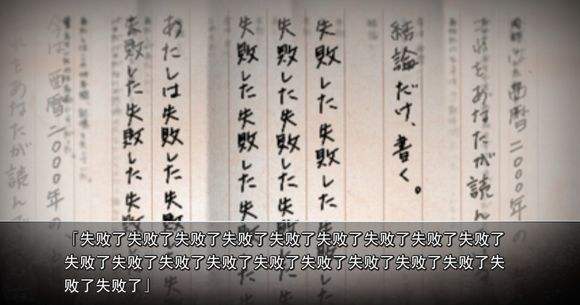 西暦二〇〇〇年の
これをあなたが読ん
結論だけ、書く。
失敗した失敗した
失敗した失敗した
失敗した失敗した
わたしは失敗した
失敗した失敗した
今は西暦二〇〇〇年の
をあなたが読ん
「失败了失败了失败了失败了失败了失败了失败了失败了失败了
失败了失败了失败了失败了失败了失败了失败了失败了失败了失
败了失败了」